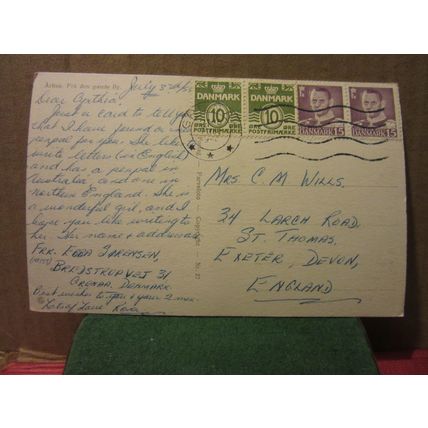 Aarhus. Fra den gamle By.
July 3rd/53
Dear Cynthia:
Just a card to tell you
that I have found a
penpal for you. She likes to
write letters (in English)
and has a penpal in
Australia and one in
northern England. She is
a wonderful girl, and I
hope you like writing to
her. Her name & address:
FRK. EBBA SØRENSEN,
(MISS)
BREDSTRUPVEJ 31
GRENAA, DENMARK.
Best wishes to you & your 2 men.
Lots of Love
DANMARK
10
ØRE
POSTFRIMÆRKE
ØRE
DANMARK
10
ØRE
POSTFRIMÆRKE
ØRE
DANMARK 15
DANMARK 15
Farvefoto - Copyright No. 27
MRS. C. M. WILLS.
34 LARCH ROAD,
ST. THOMAS,
EXETER, DEVON,
ENGLAND